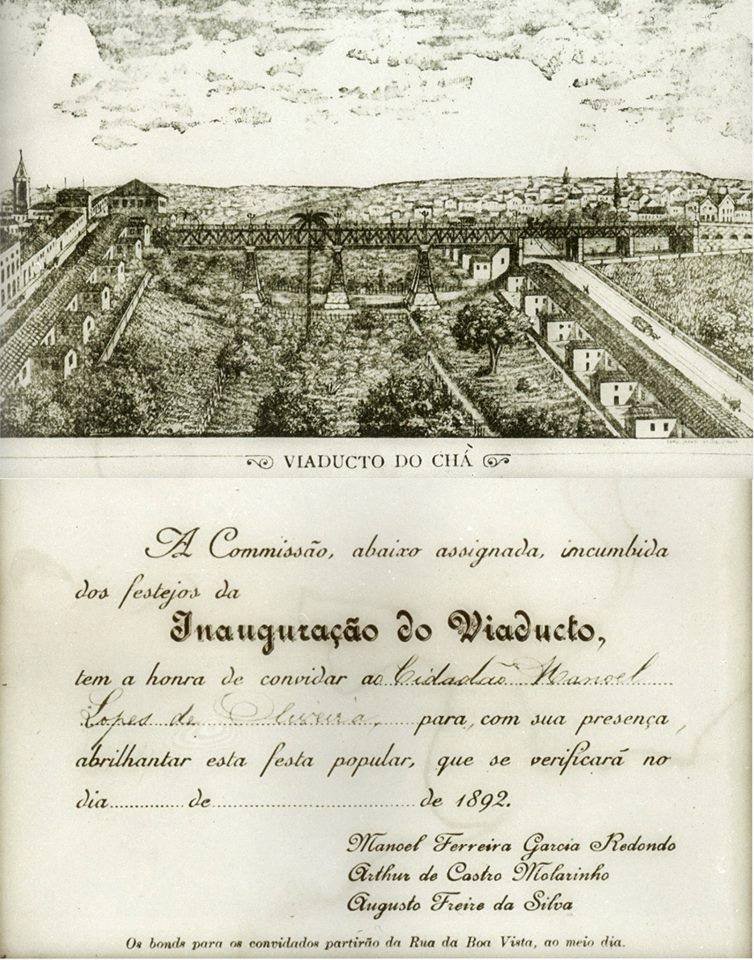 VIADUCTO DO CHÁ
A Commissão, abaixo assignada, incumbida
dos festejos da
Inauguração do Viaducto,
tem a honra de convidar ao Cidadão Manoel
Lopes de Oliveira, para, com sua presença,
abrilhantar esta festa popular, que se verificará no
dia.............. de................................ de 1892.
Manoel Ferreira Garcia Redondo
Arthur de Castro Molarinho
Augusto Freire da Silva
Os bonds para os convidados partirão da Rua da Boa Vista, ao meio dia.